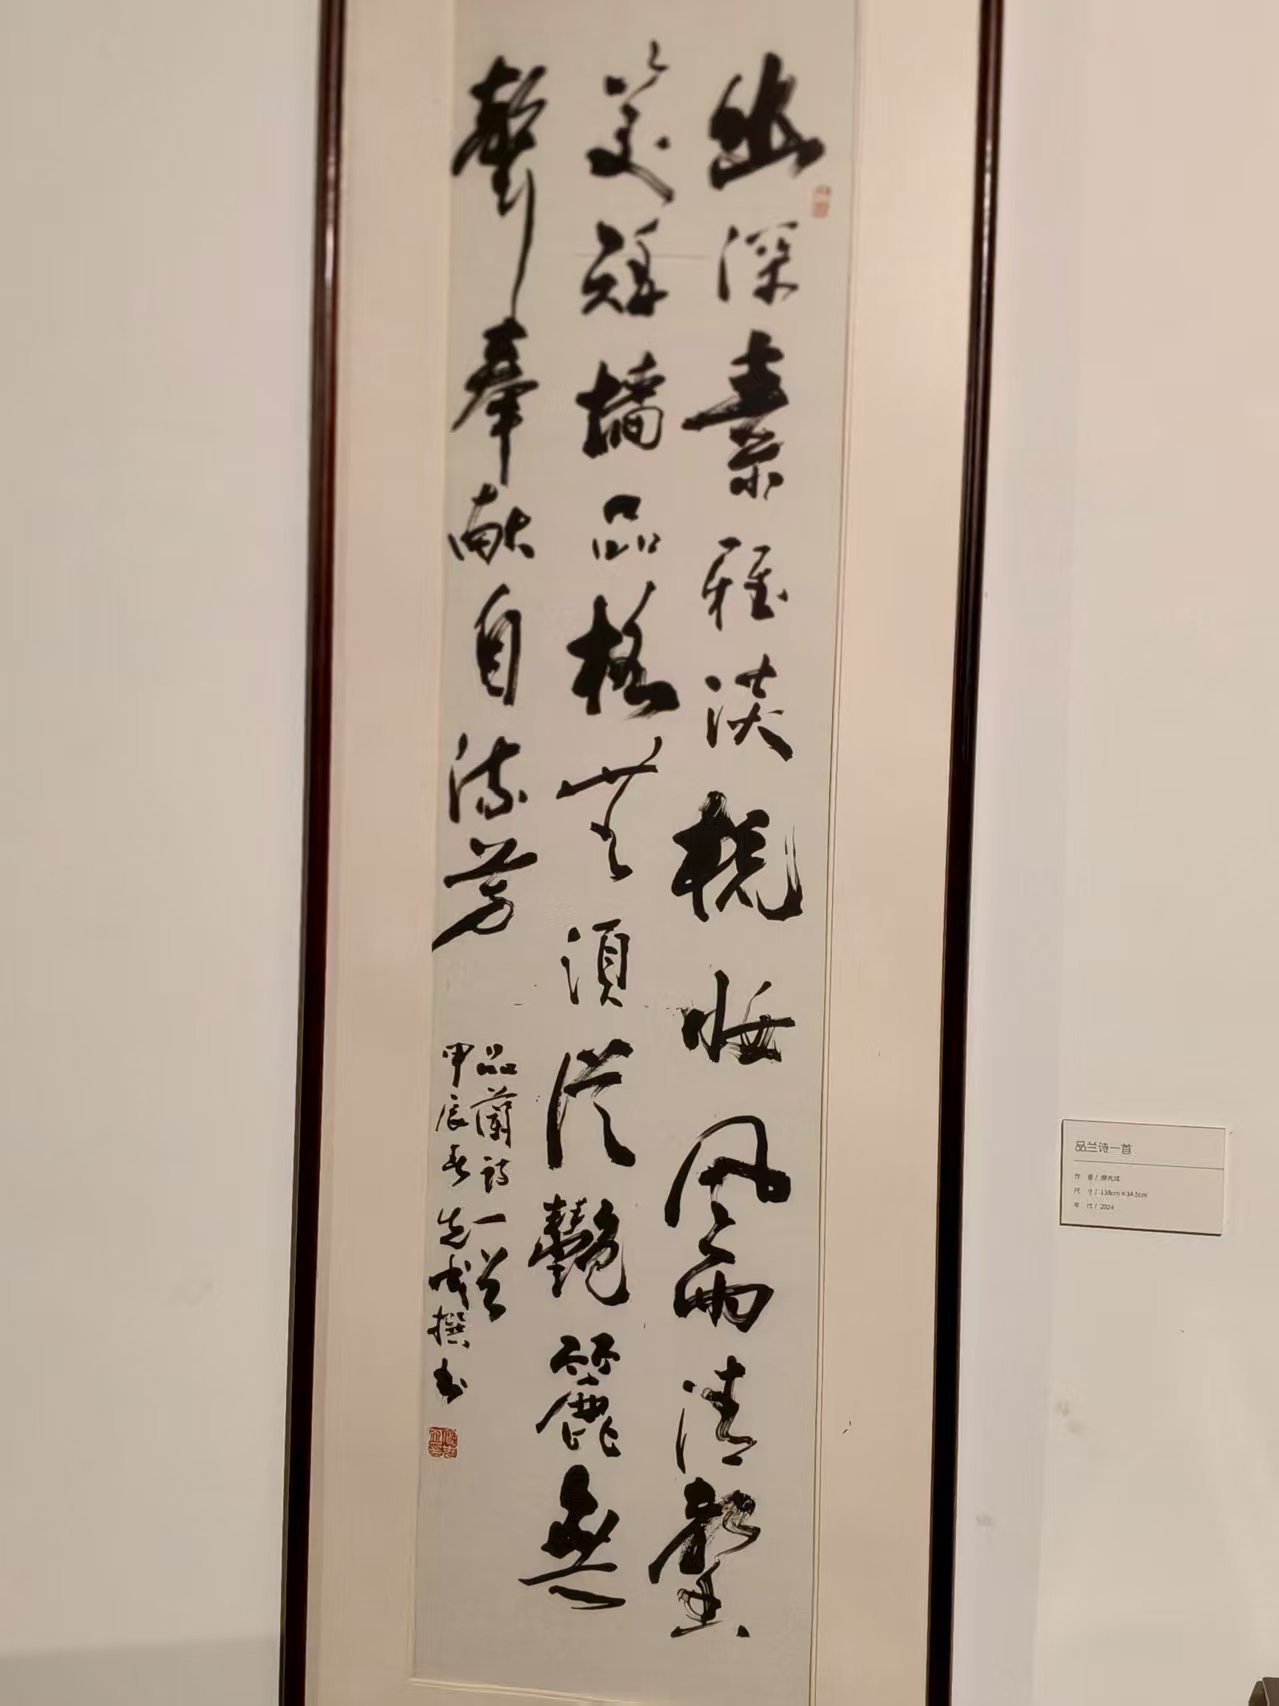 幽深素雅淡梳妝風雨清馨
墻品格無須從艷麗無
聲奉献自流芳
品蘭詩一首
甲辰春先成撰书
品兰诗一首
作 者/ 先成
尺 寸/138cm×34.5cm
年 代/2024